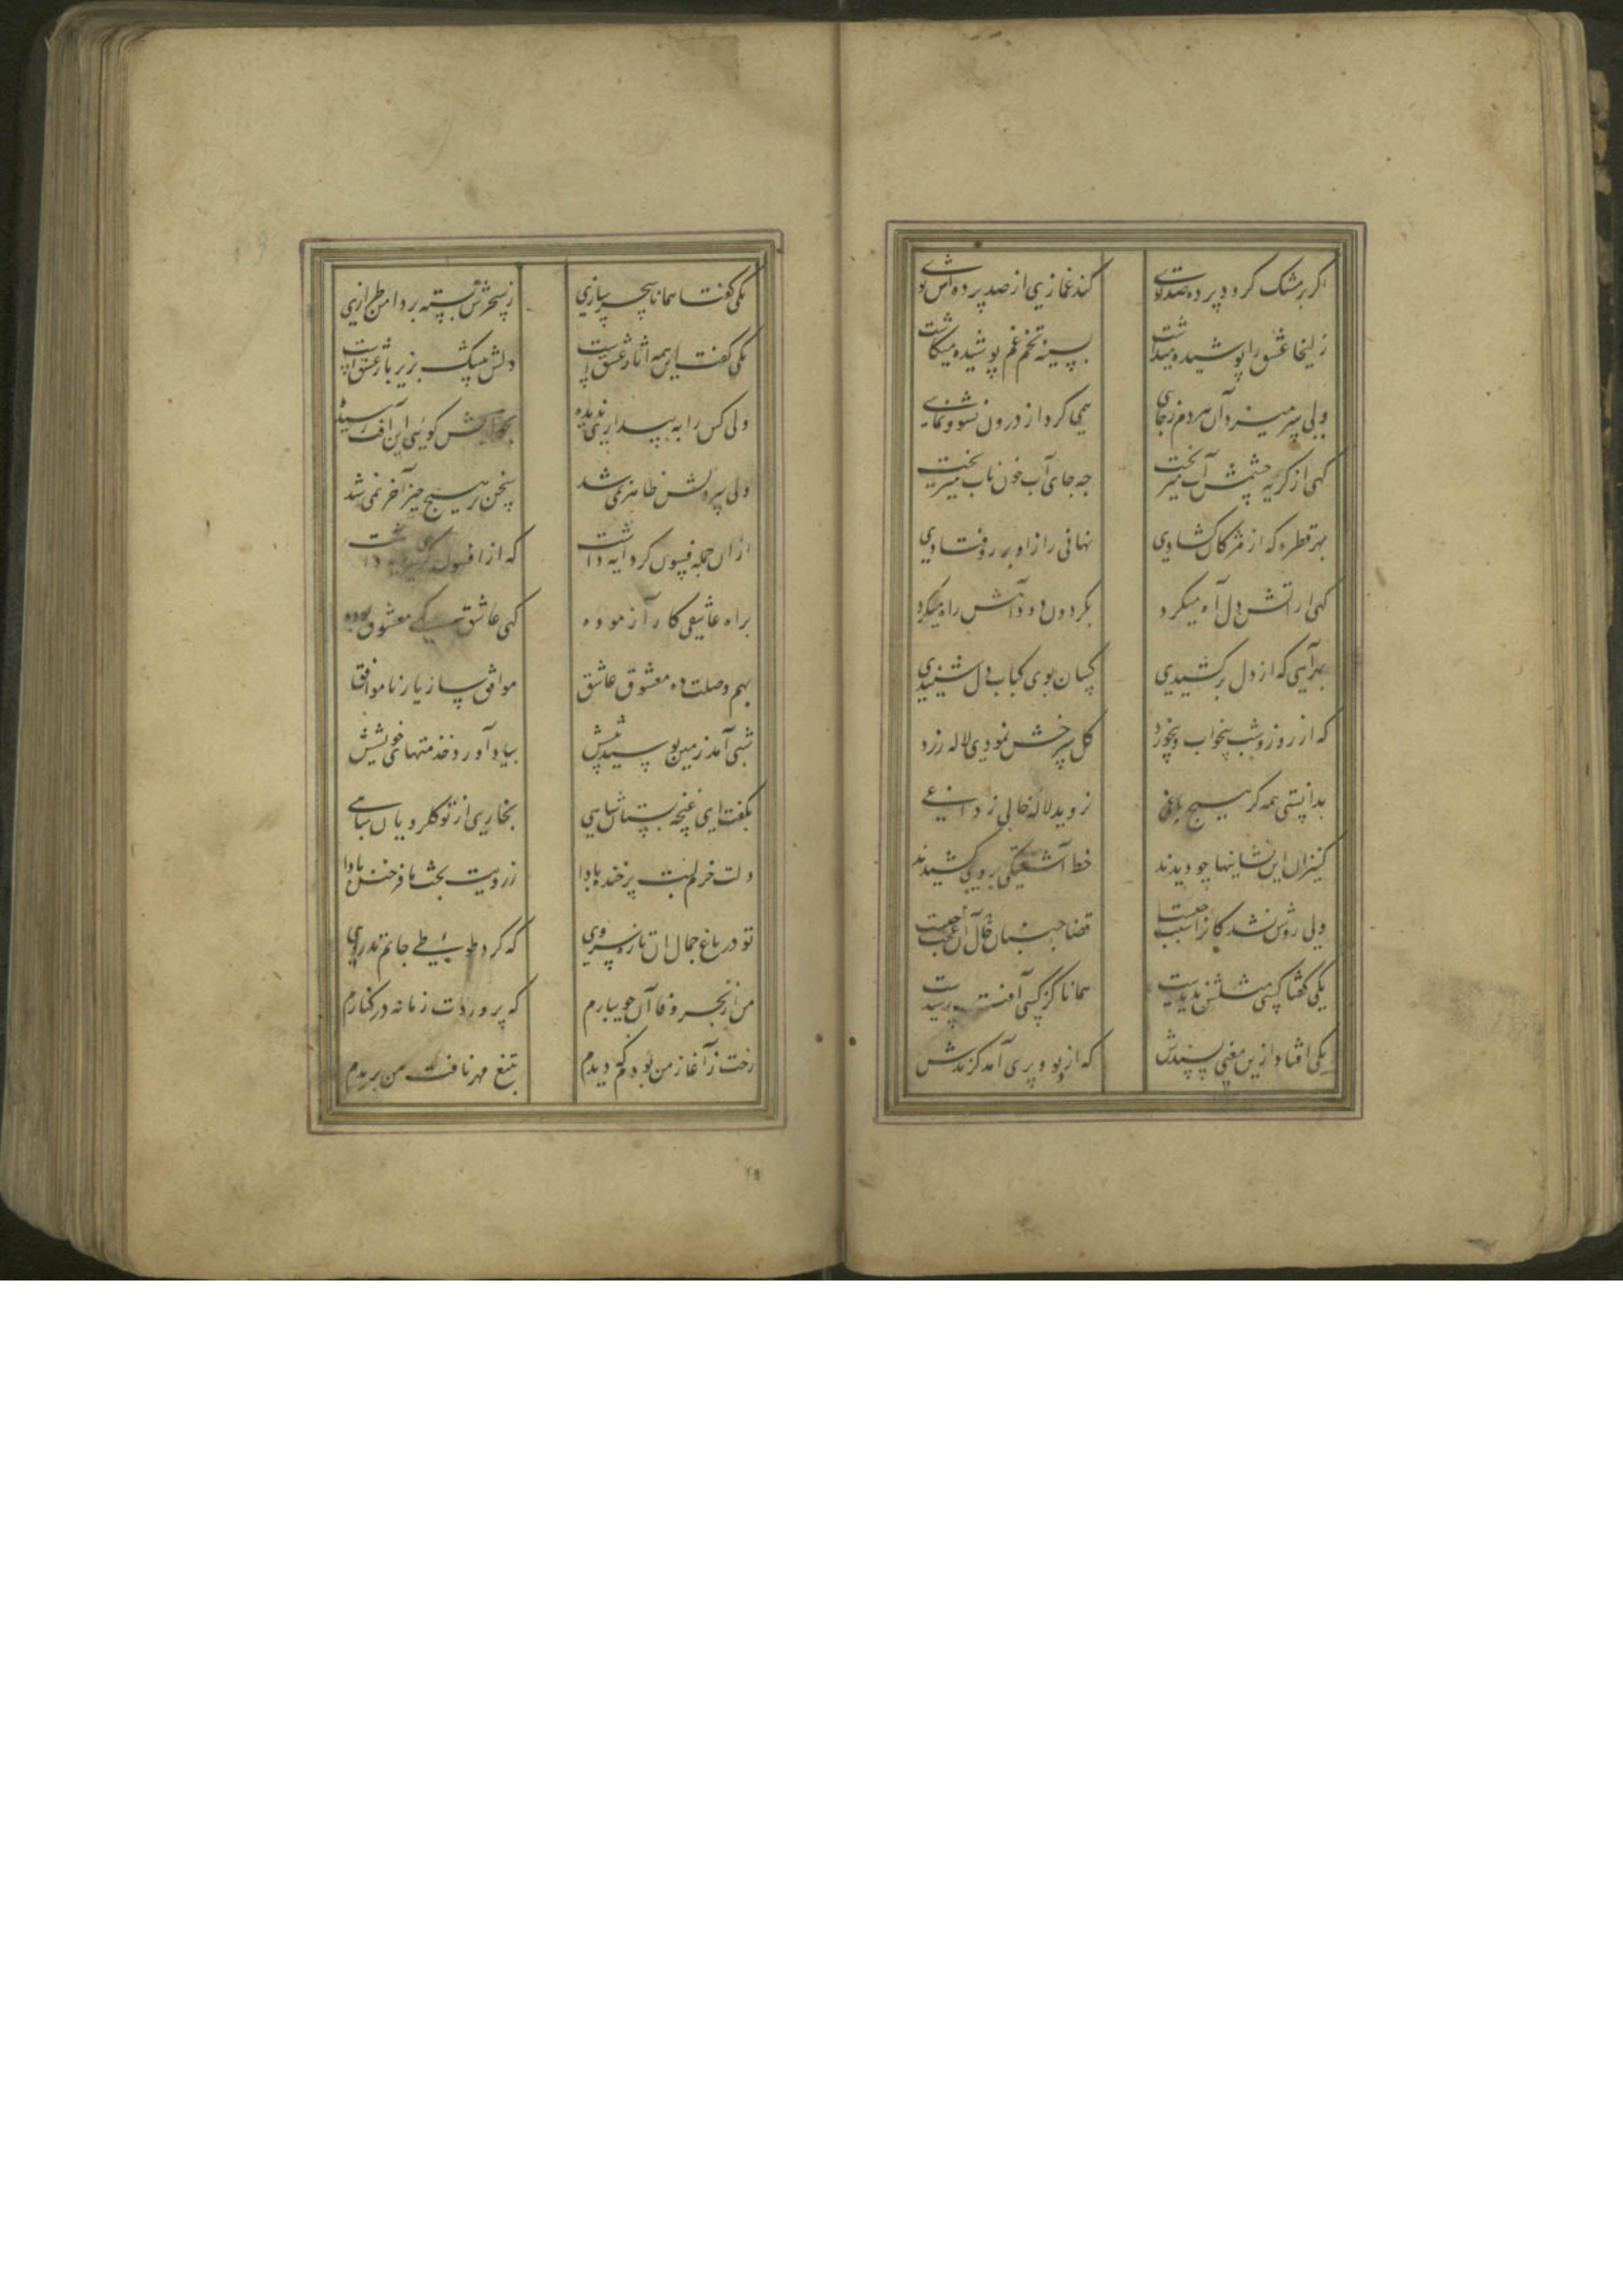 اگر بر مشک گردد پرده صد توی کند غمازی از صد پرده‌اش بوی
زلیخا عشق را پوشیده میداشت بسینه تخم غم پوشیده میکاشت
ولی سر میزد آن هر دم ز جایی همی کرد از درون نشو و نمایی
گهی از گریه چشمش آب میریخت چه جای آب خون ناب میریخت
بهر قطره که از مژگان گشادی نهانی راز او بر رو فتادی
گهی از آتش دل آه میکرد بگردون دود آهش راه میکرد
بهر آهی که از دل برکشیدی کسان بوی کباب دل شنیدی
که از روز و شب بیخواب و بیخورد گل سرخش نمودی لاله زرد
بدانستی همه کز هیچ باغی نروید لاله خالی ز داغی
کنیزان این نشانیها چو دیدند خط آشفتگی بر وی کشیدند
ولی روشن نشد کانرا سبب چیست قضا جنبان آن حال عجب کیست
یکی گفتا کسی مثلش ندیدست همانا کز کسی آفت رسیدست
یکی افتاد ازین معنی پسندش که از دیو و پری آمد گزندش
یکی گفتا همانا سحرسازی ز سحرش بسته بر دامن طرازی
یکی گفت این همه آثار عشق است دلش بیشک بزیر بار عشق است
ولی کس را به بیداری ندیده بخوابش گوئی این آفت رسیده
ولی سر دلش ظاهر نمی‌شد سخن بر هیچ چیز آخر نمی‌شد
از آن جمله فسونگر دایه داشت که از افسونگری سرمایه داشت
براه عاشقی کار آزموده گهی عاشق گهی معشوق بوده
بهم وصلت ده معشوق و عاشق موافق ساز یار ناموافق
شبی آمد زمین بوسید پیشش بیاد آورد خدمتهای خویشش
بگفت ای غنچه بستان شاهی بخاری از تو گلرویان مباهی
دلت خرم لبت پر خنده بادا ز رویت بخت ما فرخنده بادا
تو در باغ جمال آن تازه سروی که کرد طوبیطی جانم تذروی
من از بحر وفا آن جویبارم که پروردت زمانه در کنارم
رخت ز آغاز من بودم که دیدم بتیغ مهر نافت من بریدم